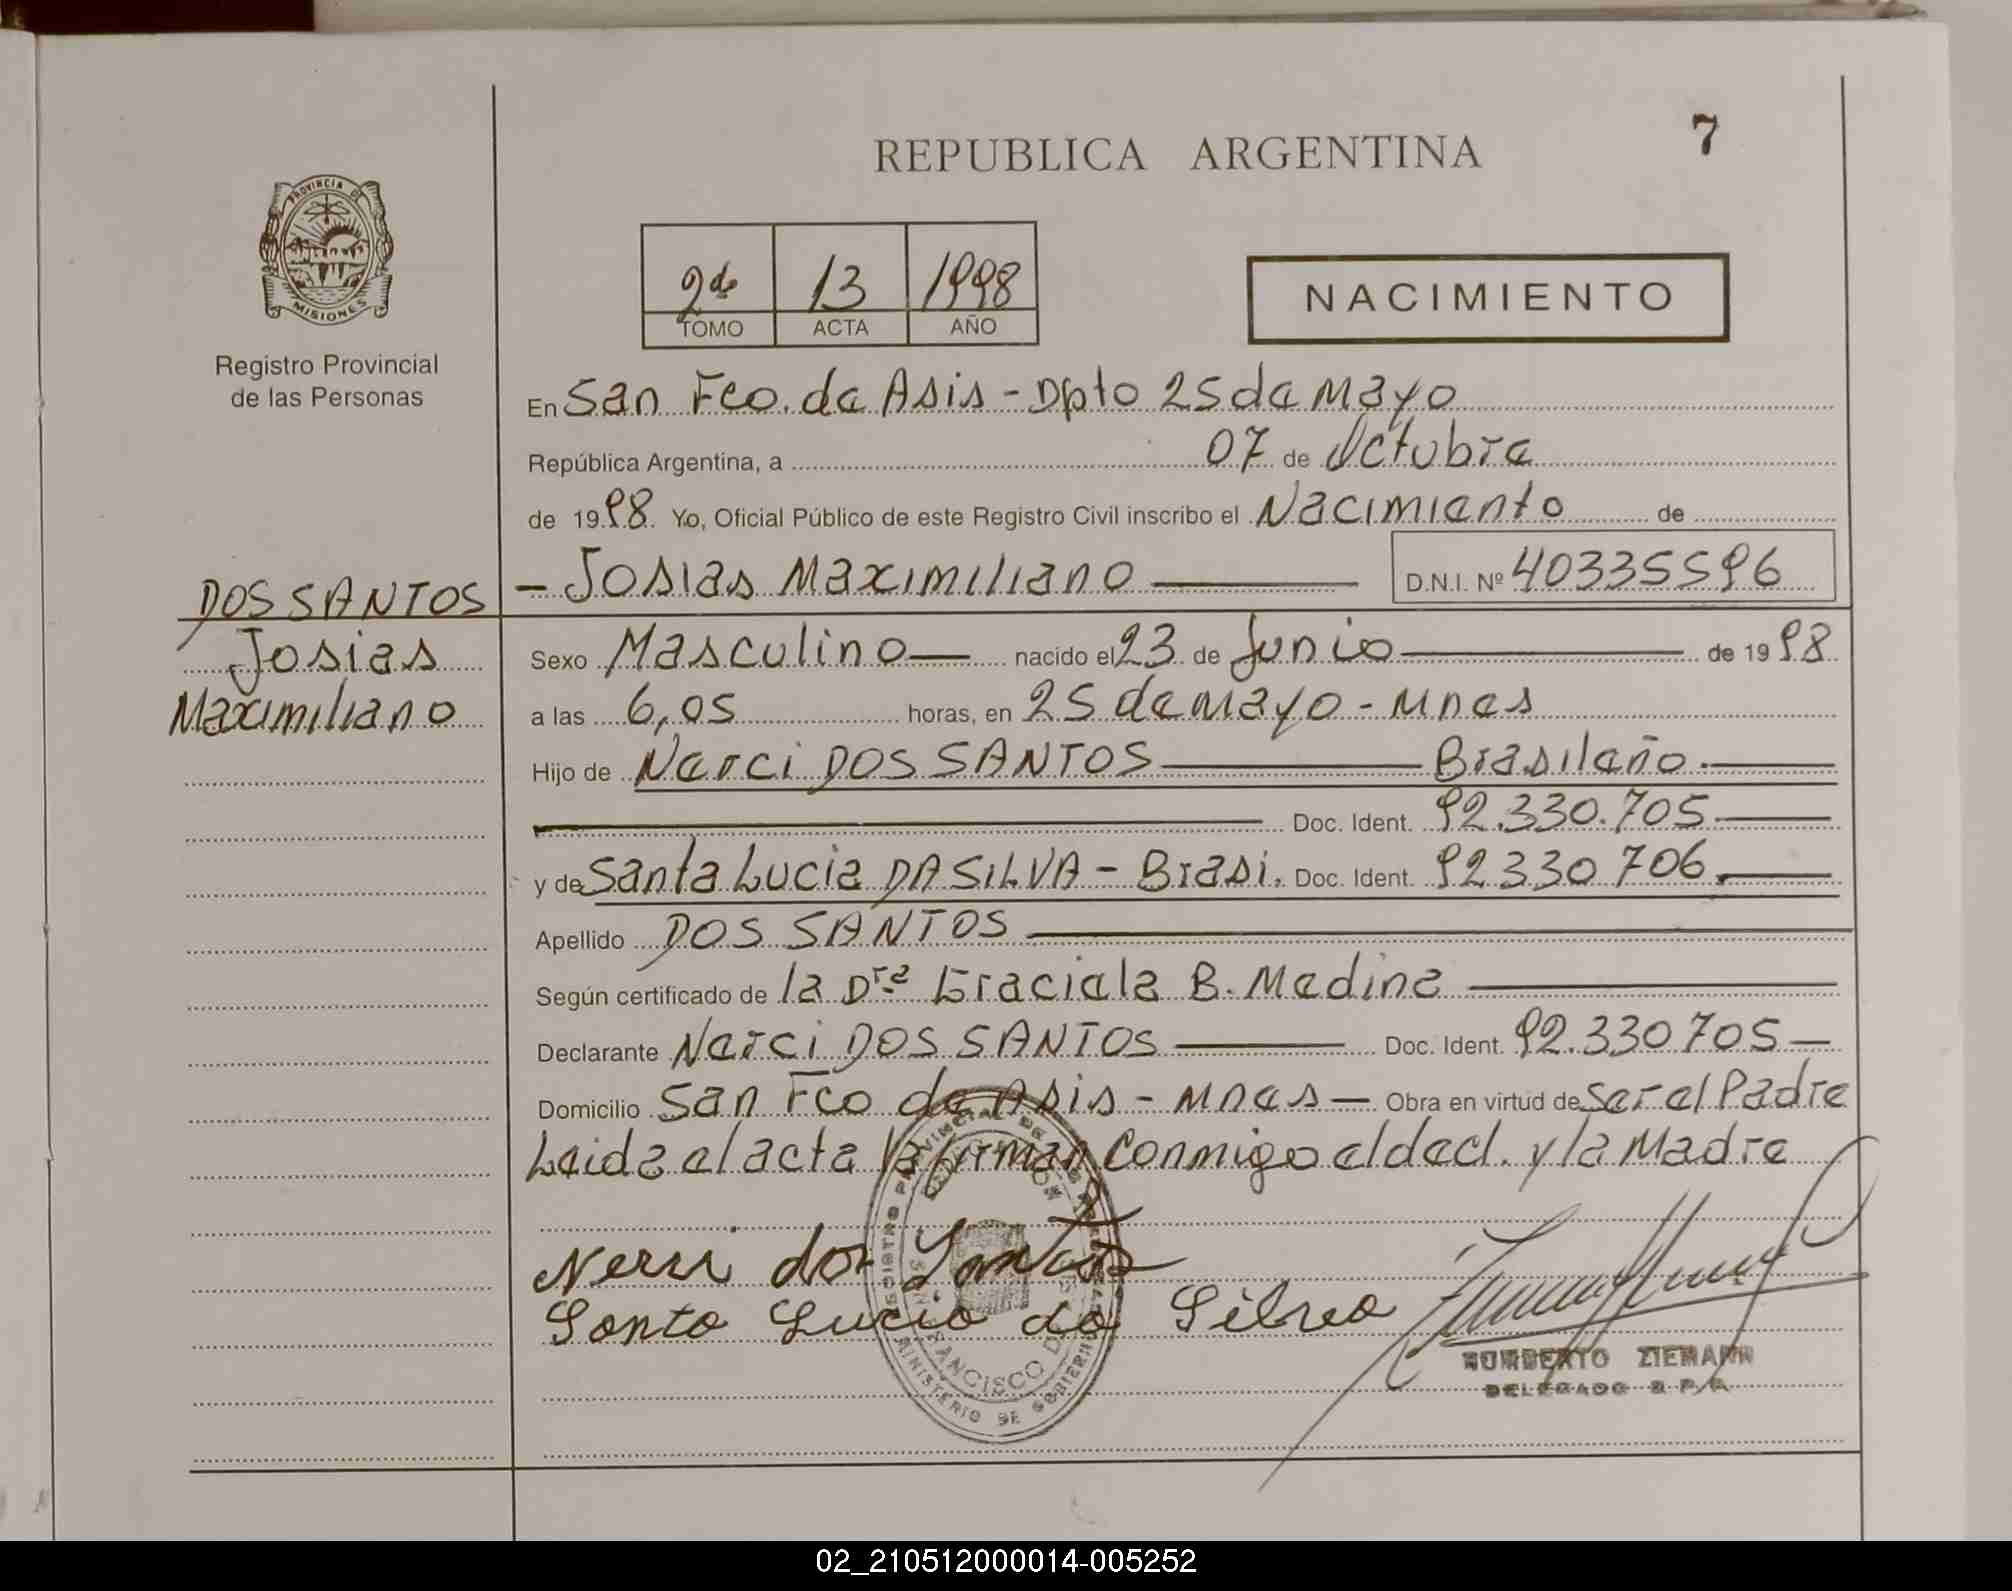 7
REPUBLICA ARGENTINA
PROVINCIA DE
MISIONES
Registro Provincial
de las Personas
2do 13 1998
TOMO ACTA AÑO
NACIMIENTO
En San Fco. de Asis - Dpto 25 de Mayo
República Argentina, a 07 de Octubre
de 1998 Yo, Oficial Público de este Registro Civil inscribo el Nacimiento de
- Josias Maximiliano D.N.I. Nº 40335596
DOS SANTOS
Josias
Maximiliano
Sexo Masculino nacido el 23 de Junio de 1998
a las 6,05 horas, en 25 de Mayo - Mnes
Hijo de Nerci DOS SANTOS Brasileño.
Doc. Ident. 92.330.705
y de Santa Lucia DA SILVA - Brasi. Doc. Ident. 92330706.
Apellido DOS SANTOS
Según certificado de la Dra Graciela B. Medina
Declarante Nerci DOS SANTOS Doc. Ident. 92.330705
Domicilio San Fco de Asis - Mnes Obra en virtud de Ser el Padre
Leida el acta la firman Conmigo el decl. y la Madre
Nerci dos Santos
Santa Lucia da Silvea
REGISTRO PROVINCIAL DE LAS PERSONAS
SAN FRANCISCO DE
MINISTERIO DE GOBIERNO
NORBERTO ZIEMANN
DELEGADO R.P.P.
02_210512000014-005252